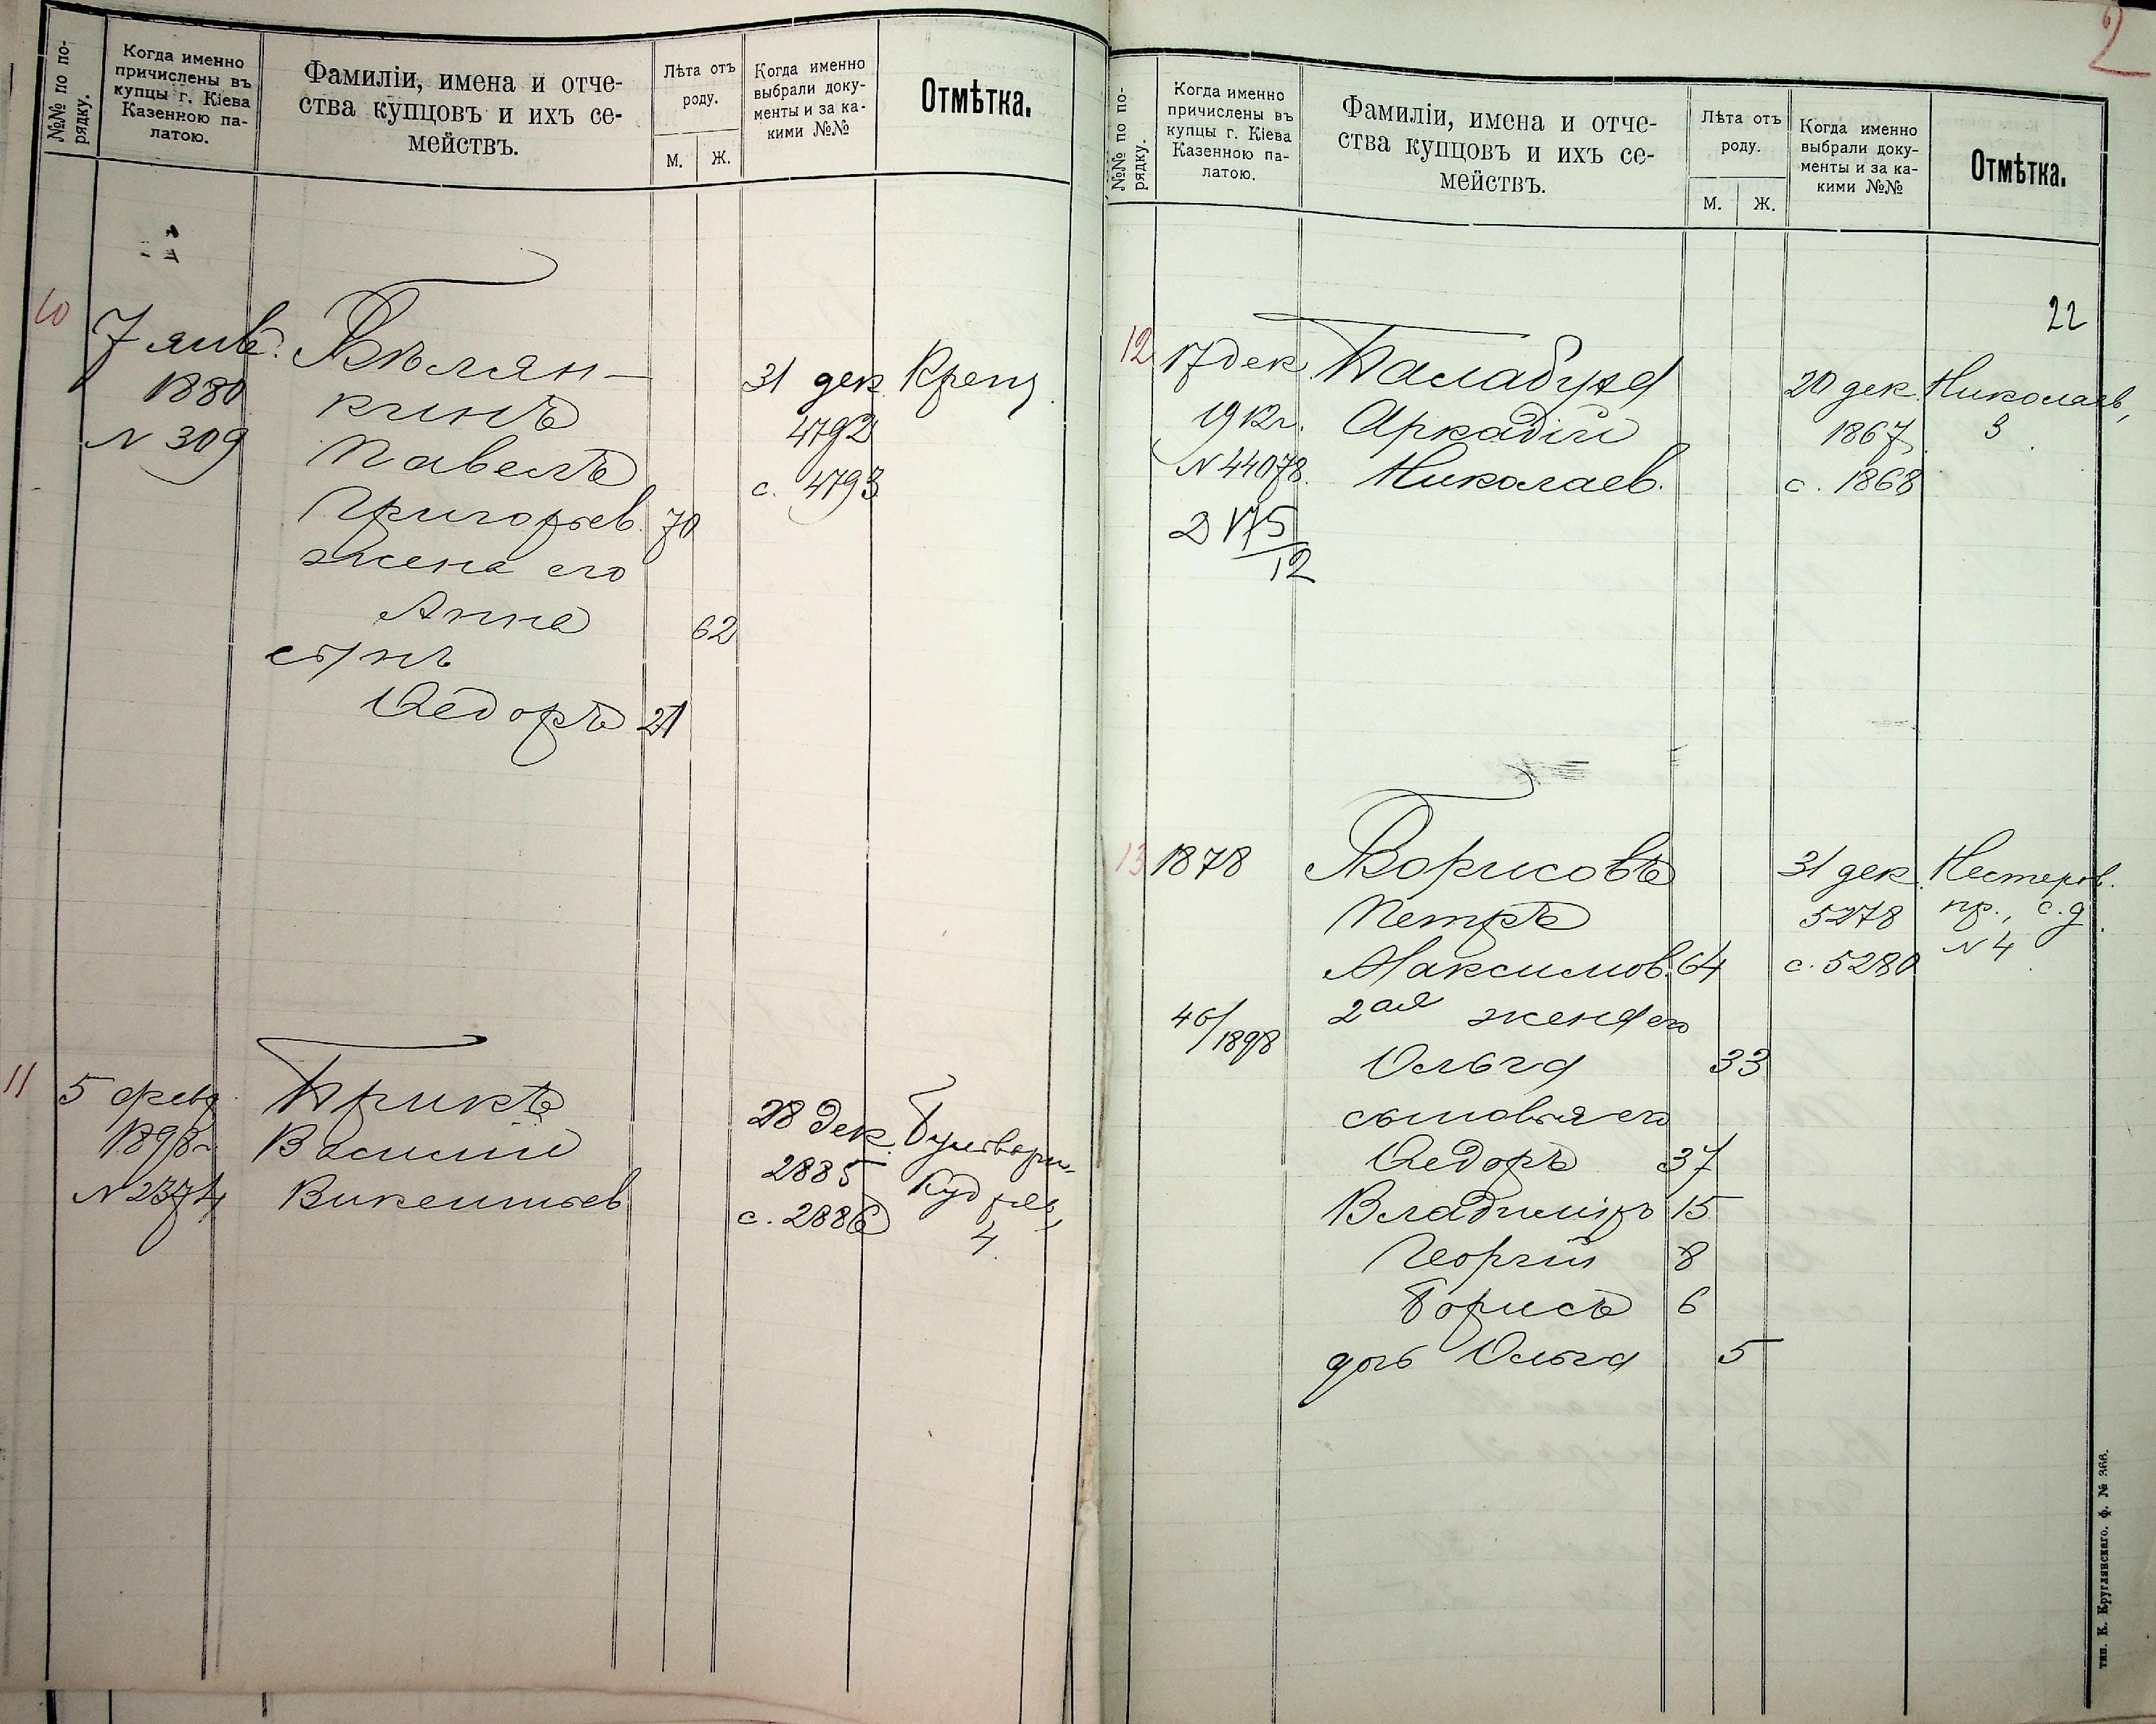 №№ по по-
рядку.
Когда именно
причислены въ
купцы г. Кіева
Казенною па-
латою.
Фамиліи, имена и отче-
ства купцовъ и ихъ се-
мействъ.
Лѣта отъ
роду.
М.
Ж.
Когда именно
выбрали доку-
менты и за ка-
кими №№
Отмѣтка.
10
7 янв.
1880
N 309
Бѣлян-
кинъ
Павелъ
Григорьев. 70
жена его
Анна 62
сынъ
Ѳедоръ 21
31 дек.
4792
с. 4793
Крещ.
11
5 февр.
1898 г.
N 2374
Брикъ
Василій
Викентьев
28 дек.
2885
с. 2886
Бульварн.
Кудряв.,
4.
2
№№ по по-
рядку.
Когда именно
причислены въ
купцы г. Кіева
Казенною па-
латою.
Фамиліи, имена и отче-
ства купцовъ и ихъ се-
мействъ.
Лѣта отъ
роду.
М.
Ж.
Когда именно
выбрали доку-
менты и за ка-
кими №№
Отмѣтка.
22
12
17 дек.
1912 г.
N 44078.
2 175/12
Балабуха
Аркадій
Николаев.
20 дек.
1867
с. 1868
Николаев,
3.
13
1878
Борисовъ
Петръ
Максимов. 64
46/1898
2ая жена его
Ольга 33
сыновья его
Ѳедоръ 37
Владиміръ 15
Георгій 8
Борисъ 6
дочь Ольга 5
31 дек.
5278
с. 5280
Нестеров.
пр., с. д.
N 4.
тип. К. Круглянскаго. ф. № 366.